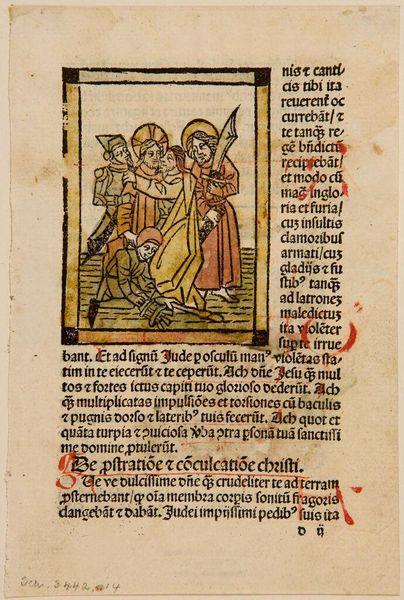 nis ⁊ canti-
cis tibi ita
reuerent̃ oc
currebãt/ ⁊
te tanq̃ re-
gẽ bñdictũ
recipiebãt/
et modo cũ
mag̃ inglo-
ria et furia/
cuʒ insultis
clamoribus
armati/ cuʒ
gladijs ⁊ fu
stibꝰ tanq̃
ad latroneʒ
maledictuʒ
ita violẽter
sup te irrue
bant. Et ad signũ Jude ꝑ osculũ manꝰ violẽtas sta
tim in te eiecerũt ⁊ te ceperũt. Ach dñe Jesu q̃ mul
tos ⁊ fortes ictus capiti tuo glorioso dederũt. Ach
q̃ multiplicatas impulsiões et torsiones cũ baculis
⁊ pugnis dorso ⁊ lateribꝰ tuis fecerũt. Ach quot et
quãta turpia ⁊ ꝯuiciosa v̓ba ꝯtra ꝑsonã tuã sanctissi
me domine ꝓtulerũt.
De ꝓstratiõe ⁊ cõculcatiõe christi.
Ue ve dulcissime dñe q̃ crudeliter te ad terram
ꝓsternebant/ ꝙ oĩa membra corꝑis sonitũ fragoris
clangebãt ⁊ dabãt. Judei impijssimi pedibꝰ suis ita
d ij
Sch. 3442, 14